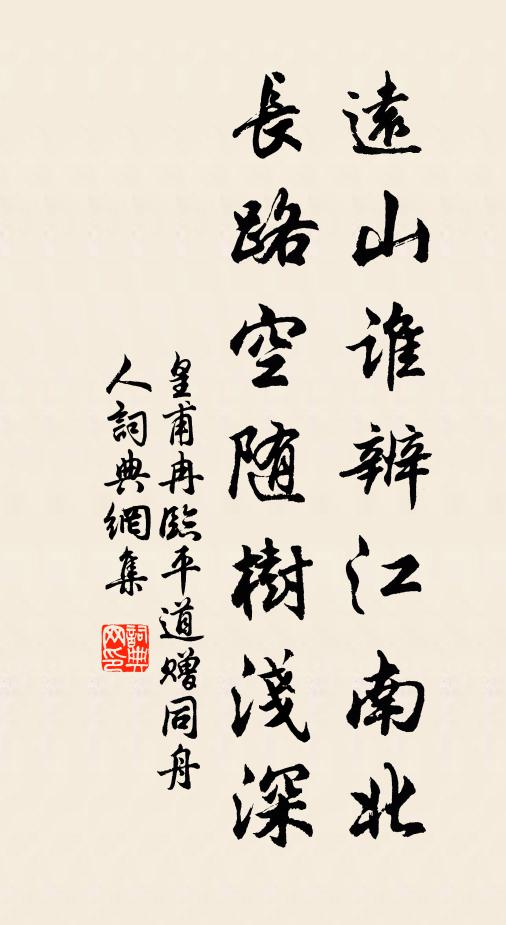 遠山誰辨江南北
長路空随樹淺深
皇甫冉臨平道赠同舟
人詞典網集
詞典网印